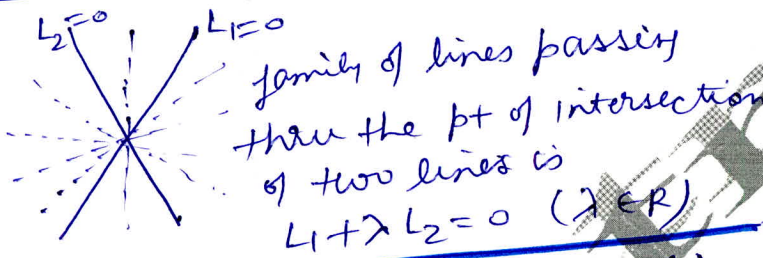 L₂=0
L₁=0
family of lines passing
thru the pt of intersection
of two lines is
L₁+λL₂=0 (λ∈R)